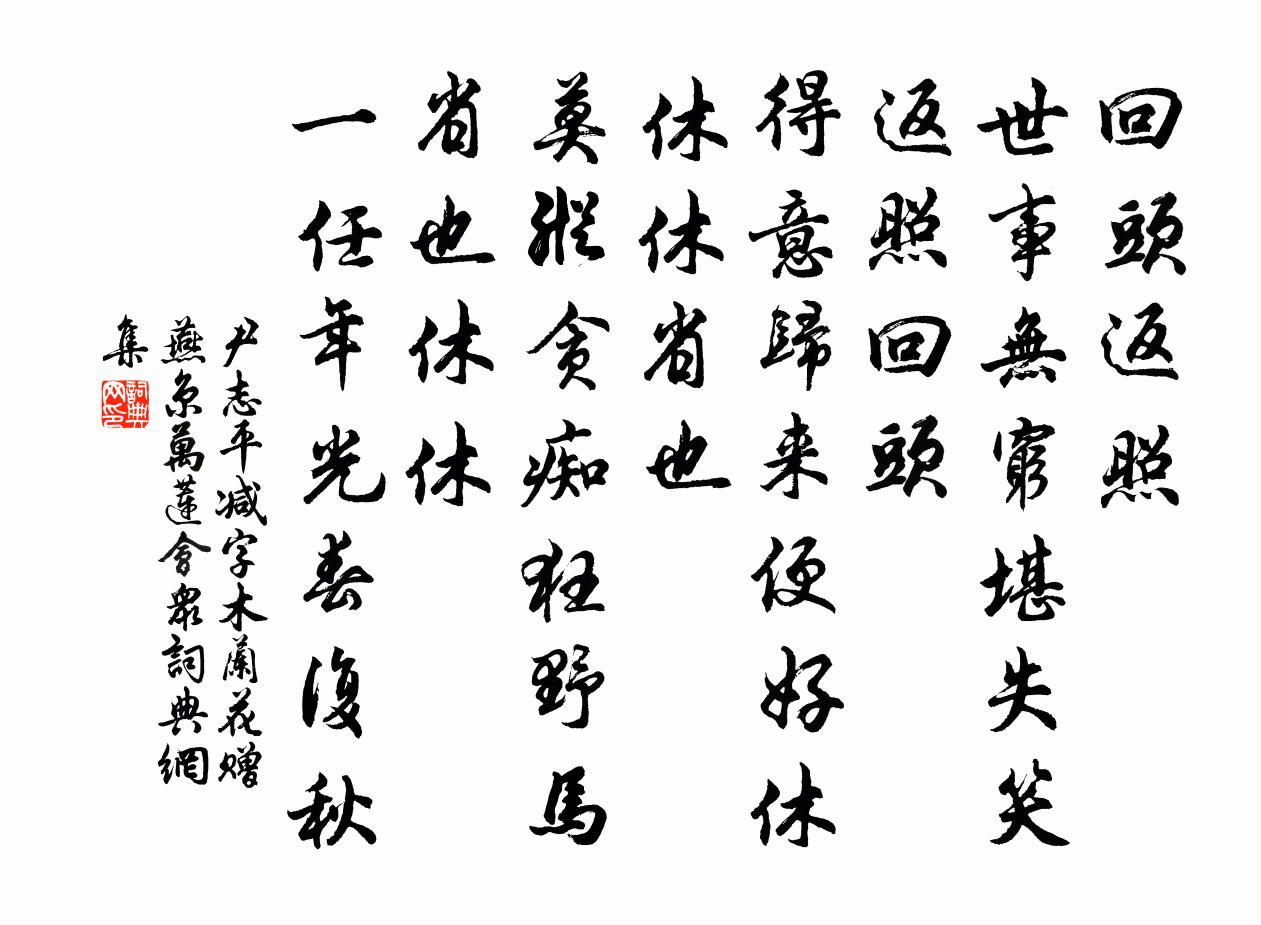 回頭返照
世事無窮堪失笑
返照回頭
得意歸来便好休
休休省也
莫縱貪痴狂野馬
省也休休
一任年光春復秋
尹志平减字木蘭花赠
燕京萬蓮會衆詞典網
集
詞典网印